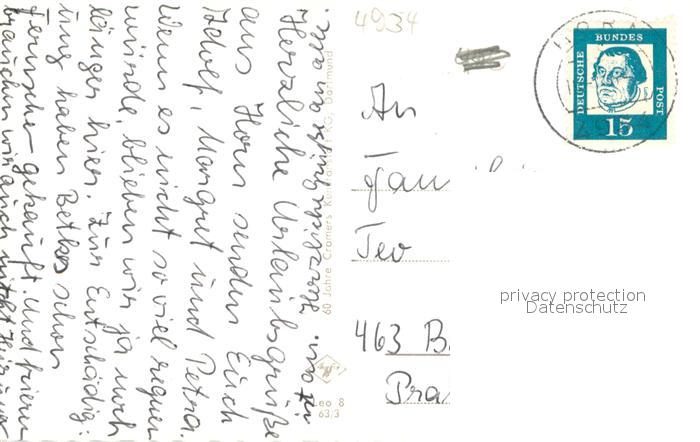 Herzliche Urlaubsgrüße
aus Horn senden Euch
Adolf, Margret und Petra.
Wenn es nicht so viel regnen
würde, blieben wir ja noch
länger hier. Zur Entschädig-
ung haben Betkes schon
Fernseher gekauft. Und frieren
brauchen wir auch nicht
60 Jahre Cramers Kunstanstalt KG, Dortmund
Leo 8
63/3
4934
An
Fam
Teo
463 B
DEUTSCHE
BUNDES
POST
15
privacy protection
Datenschutz